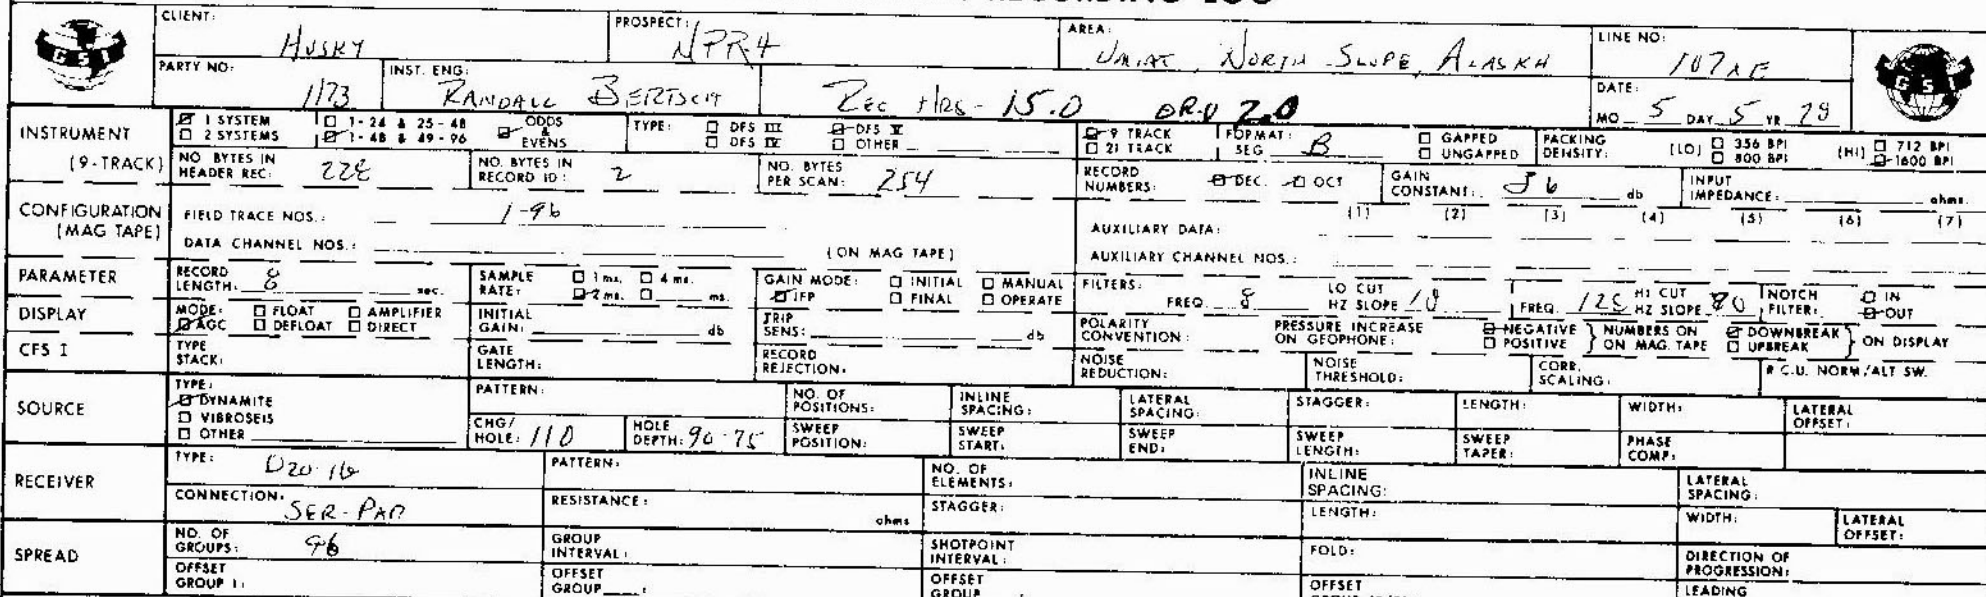 RECORDING LOG
CLIENT: HUSKY PROSPECT: NPR4 AREA: UMIAT, NORTH SLOPE, ALASKA LINE NO:
GSI
PARTY NO: 1173 INST. ENG: RANDALL BERTSCH REC HRS- 15.0 DR.V 2.0 DATE: MO 5 DAY 5 YR 78
GSI
INSTRUMENT (9-TRACK) 1 SYSTEM 1-24 & 25-48 ODDS & EVENS TYPE: DFS III DFS V 9 TRACK FORMAT: SEG B GAPPED PACKING DENSITY: (LO) 356 BPI (HI) 712 BPI
2 SYSTEMS 1-48 & 49-96 DFS IV OTHER 21 TRACK UNGAPPED 800 BPI 1600 BPI
NO. BYTES IN HEADER REC: 228 NO. BYTES IN RECORD ID: 2 NO. BYTES PER SCAN: 254 RECORD NUMBERS: DEC. OCT GAIN CONSTANT: 36 db INPUT IMPEDANCE: ohms.
CONFIGURATION (MAG TAPE) FIELD TRACE NOS.: 1-96 AUXILIARY DATA: (1) (2) (3) (4) (5) (6) (7)
DATA CHANNEL NOS.: (ON MAG TAPE) AUXILIARY CHANNEL NOS.:
PARAMETER RECORD LENGTH: 6 sec. SAMPLE RATE: 1 ms. 4 ms. 2 ms. ms. GAIN MODE: INITIAL MANUAL IFP FINAL OPERATE FILTERS: FREQ. 8 LO CUT HZ SLOPE 18 FREQ. 128 HI CUT HZ SLOPE NOTCH FILTER: IN OUT
DISPLAY MODE: FLOAT AMPLIFIER AGC DEFLOAT DIRECT INITIAL GAIN: db TRIP SENS: db POLARITY CONVENTION: PRESSURE INCREASE ON GEOPHONE: NEGATIVE POSITIVE NUMBERS ON ON MAG. TAPE DOWNBREAK UPBREAK ON DISPLAY
CFS I TYPE STACK: GATE LENGTH: RECORD REJECTION: NOISE REDUCTION: NOISE THRESHOLD: CORR. SCALING: # C.U. NORM/ALT SW.
SOURCE TYPE: DYNAMITE VIBROSEIS OTHER PATTERN: NO. OF POSITIONS: INLINE SPACING: LATERAL SPACING: STAGGER: LENGTH: WIDTH: LATERAL OFFSET:
CHG/HOLE: 110 HOLE DEPTH: 90-75 SWEEP POSITION: SWEEP START: SWEEP END: SWEEP LENGTH: SWEEP TAPER: PHASE COMP:
RECEIVER TYPE: PATTERN: NO. OF ELEMENTS: INLINE SPACING: LATERAL SPACING:
CONNECTION: SER-PAR RESISTANCE: ohms STAGGER: LENGTH: WIDTH: LATERAL OFFSET:
SPREAD NO. OF GROUPS: 96 GROUP INTERVAL: SHOTPOINT INTERVAL: FOLD: DIRECTION OF PROGRESSION:
OFFSET GROUP 1: OFFSET GROUP : OFFSET GROUP OFFSET LEADING